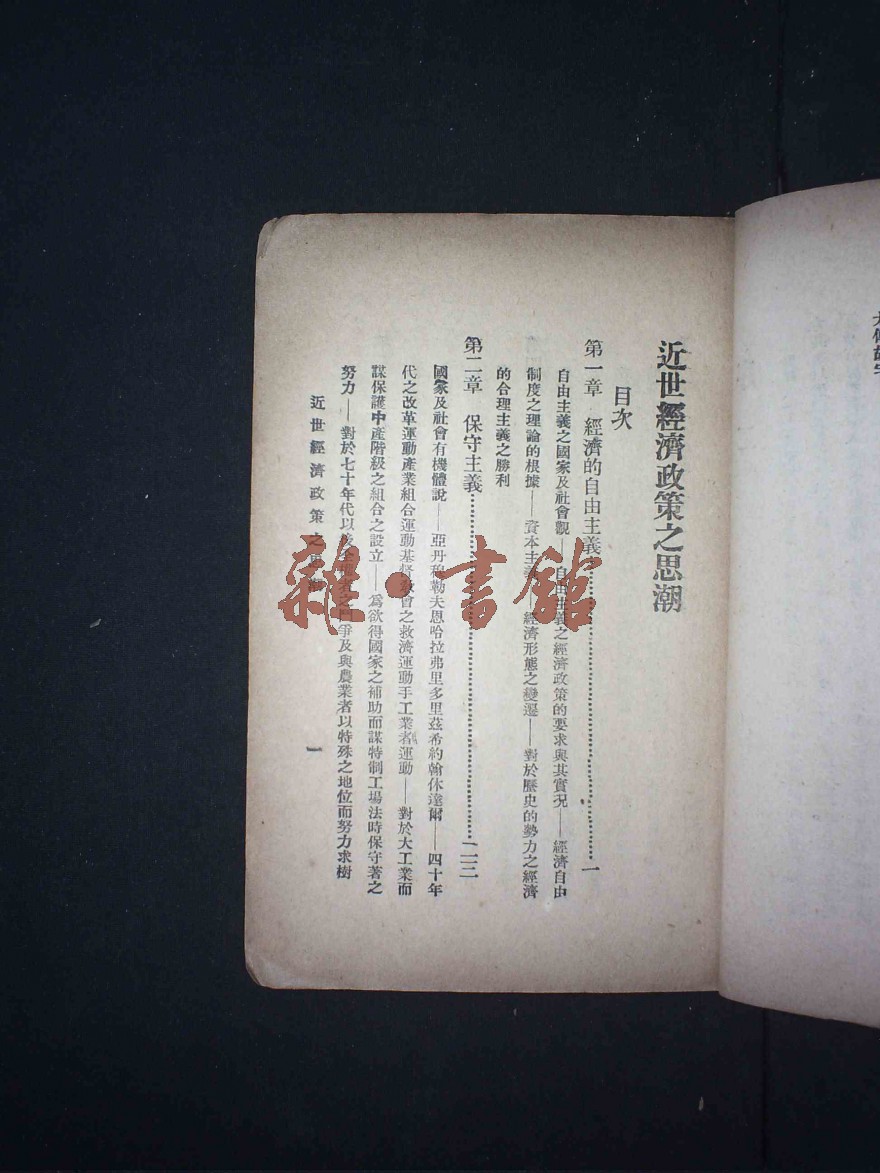 近世經濟政策之思潮
目次
第一章 經濟的自由主義……一
自由主義之國家及社會觀——自由主義之經濟政策的要求與其實況——經濟自由
制度之理論的根據——資本主義——經濟形態之變遷——對於歷史的勢力之經濟
的合理主義之勝利
第二章 保守主義……二三
國家及社會有機體說——亞丹穆勒夫恩哈拉弗里多里茲希約翰休達爾——四十年
代之改革運動產業組合運動基督教會之救濟運動手工業者運動——對於大工業而
謀保護中產階級之組合之設立——為欲得國家之補助而謀特制工場法時保守著之
努力——對於七十年代以後 者之鬥爭及與農業者以特殊之地位而努力求樹
近世經濟政策之思潮
一
雜·書館